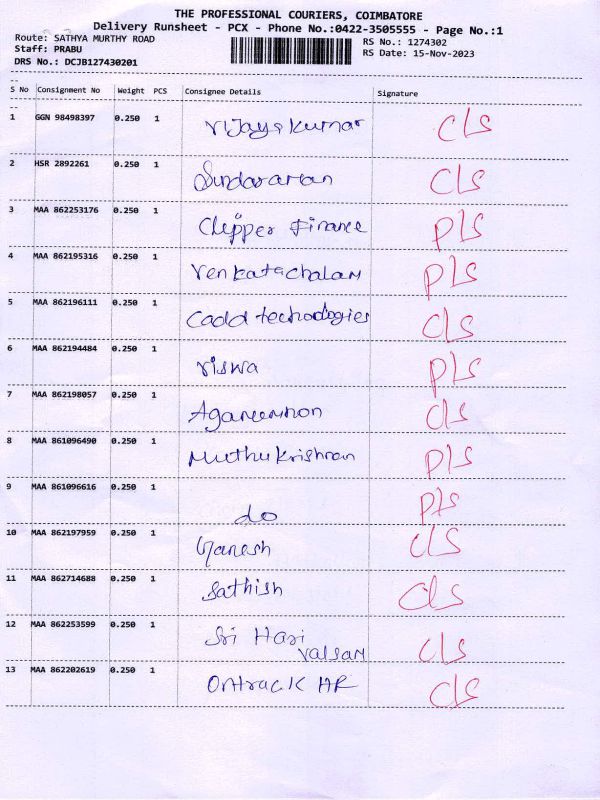 THE PROFESSIONAL COURIERS, COIMBATORE
Delivery Runsheet - PCX - Phone No.:0422-3505555 - Page No.:1
Route: SATHYA MURTHY ROAD RS No.: 1274302
Staff: PRABU RS Date: 15-Nov-2023
DRS No.: DCJB127430201
S No Consignment No Weight PCS Consignee Details Signature
1 GGN 98498397 0.250 1 Vijaya Kumar CLS
2 HSR 2892261 0.250 1 Sundararaman CLS
3 MAA 862253176 0.250 1 Clipper Finance PLS
4 MAA 862195316 0.250 1 Venkatachalam PLS
5 MAA 862196111 0.250 1 Cadd technologies CLS
6 MAA 862194484 0.250 1 Viswa PLS
7 MAA 862198057 0.250 1 CLS
8 MAA 861096490 0.250 1 Muthu Krishnan PLS
9 MAA 861096616 0.250 1 do PLS
10 MAA 862197959 0.250 1 Ganesh CLS
11 MAA 862714688 0.250 1 Sathish CLS
12 MAA 862253599 0.250 1 Sri Hari
Valsam CLS
13 MAA 862202619 0.250 1 Ontrack HR CLS